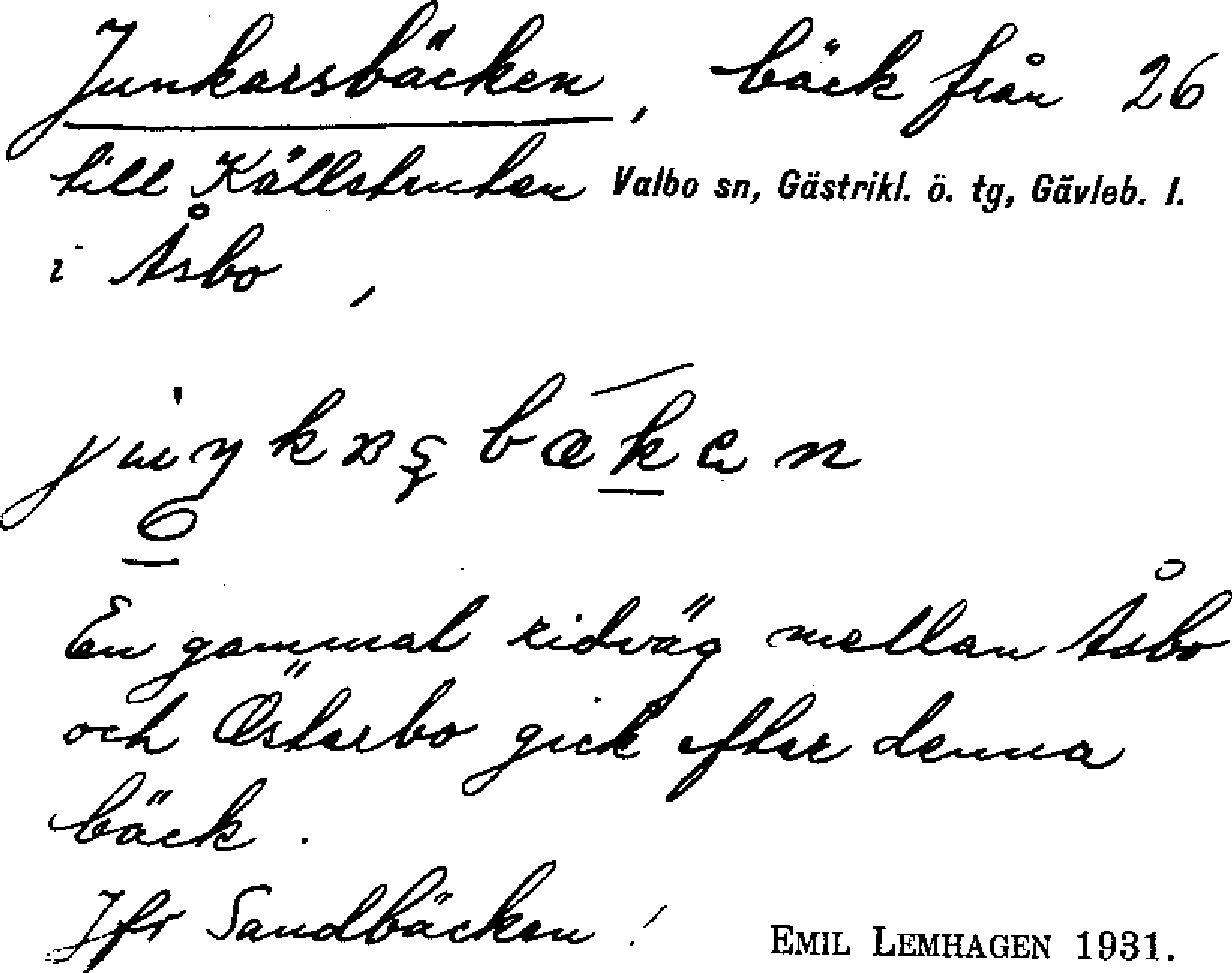 Junkarsbäcken, bäck från 26
till Källstrutan Valbo sn, Gästrikl. ö. tg, Gävleb. l.
i Åsbo,
En gammal ridväg mellan Åsbo
och Österbo gick efter denna
bäck.
Jfr Sandbäcken!
EMIL LEMHAGEN 1931.